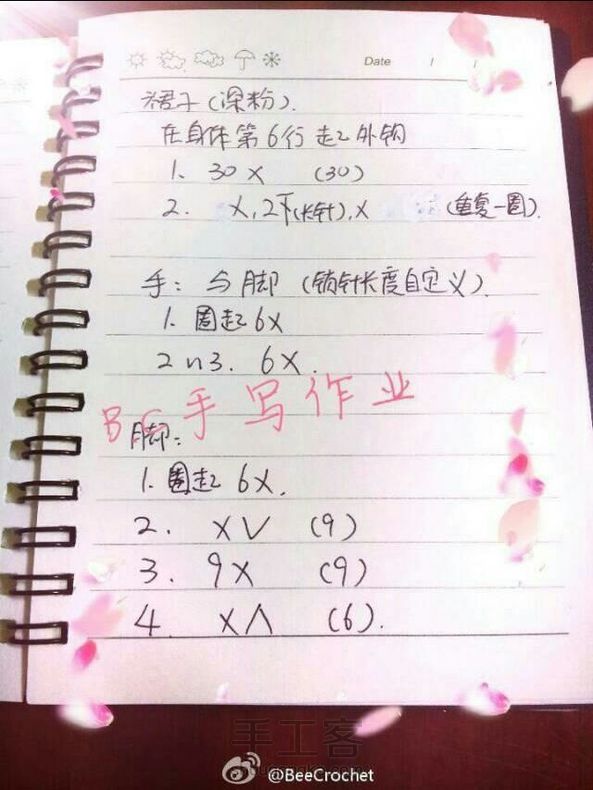 Date / /
裙子(深粉).
在身体第6行起外钩
1. 30X (30)
2. X,2下(长针),X (重复一圈).
手: 与脚 (锁针长度自定义).
1. 圈起6X
2n3. 6X.
手写作业
脚:
1. 圈起6X.
2. XV (9)
3. 9X (9)
4. X∧ (6).
手工客
@BeeCrochet